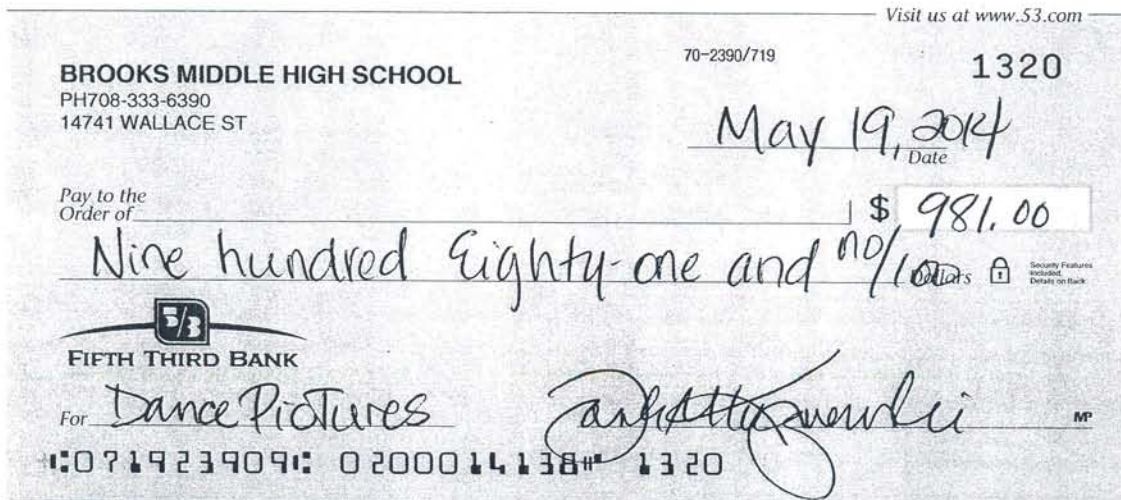 Visit us at www.53.com
70-2390/719
1320
BROOKS MIDDLE HIGH SCHOOL
PH708-333-6390
14741 WALLACE ST
May 19, 2014
Date
Pay to the
Order of
$ 981.00
Nine hundred Eighty-one and no/100 Dollars
Security Features
Included.
Details on Back
5/3
FIFTH THIRD BANK
For Dance Pictures
MP
⑆071923909⑆ 0200014138⑈ 1320